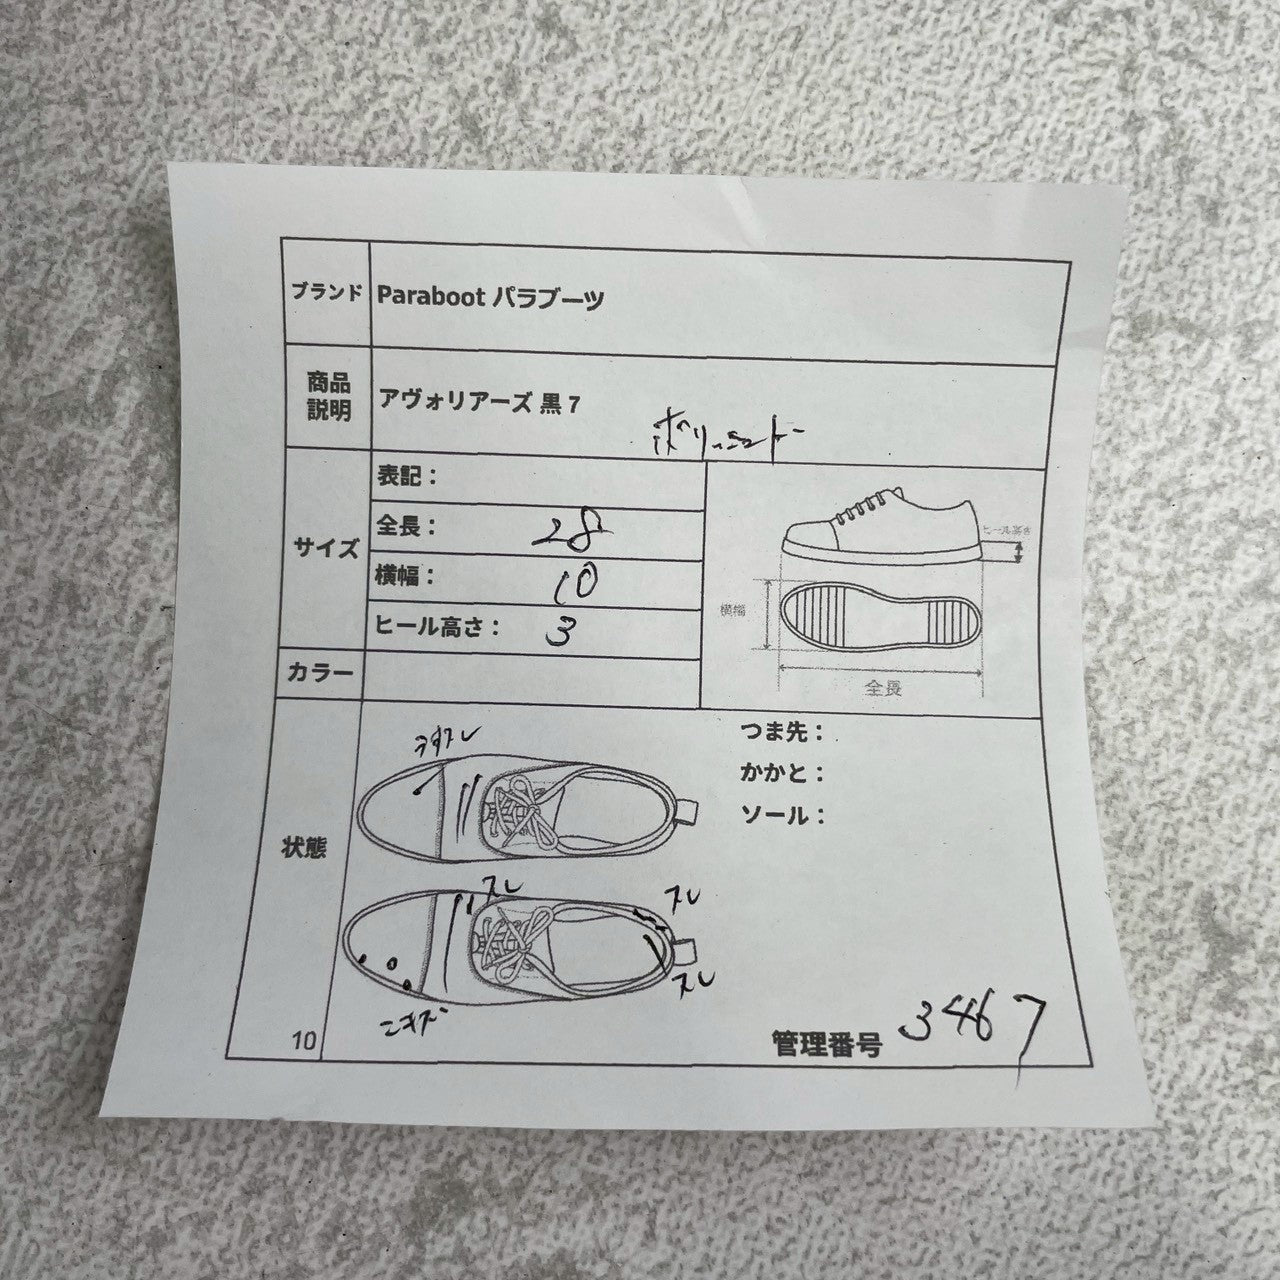 ブランド Paraboot パラブーツ
商品説明 アヴォリアーズ 黒 7
サイズ
表記：
全長： 28
横幅： 10
ヒール高さ： 3
ヒール高さ
横幅
全長
カラー
状態
つま先：
かかと：
ソール：
スレ
スレ
スレ
10
管理番号 3467